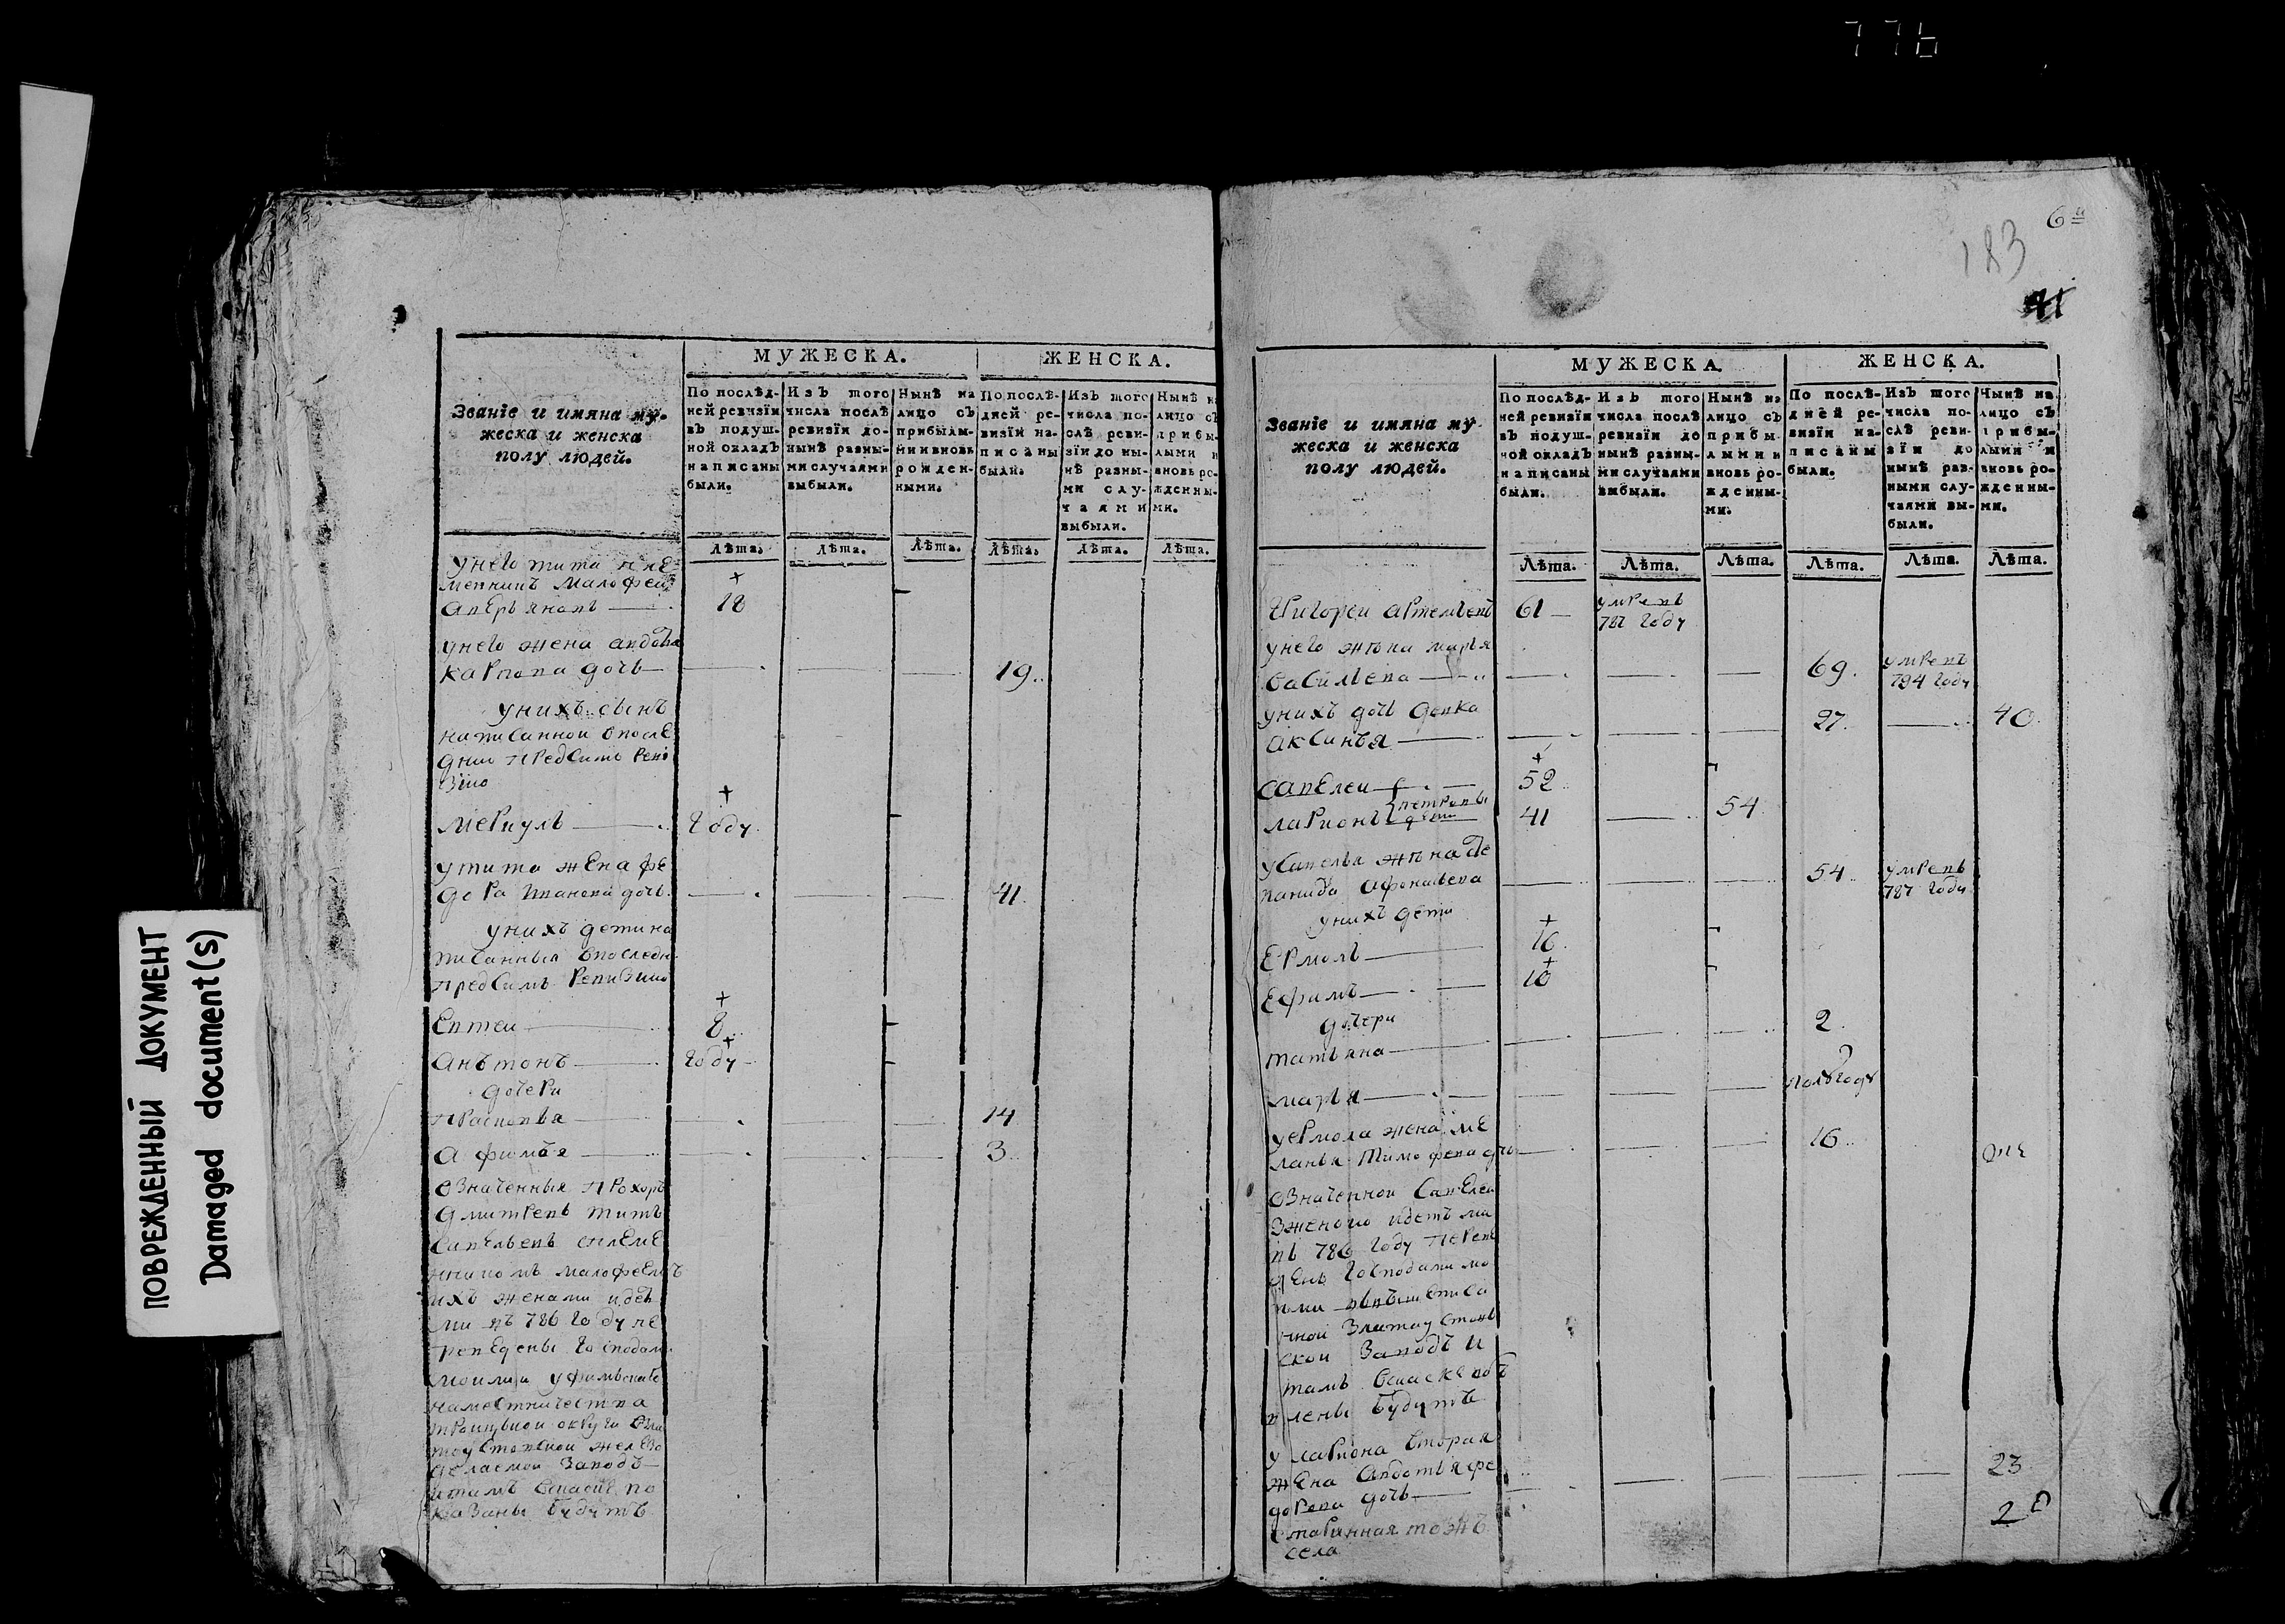 776
ПОВРЕЖДЕННЫЙ ДОКУМЕНТ
Damaged document(s)
МУЖЕСКА.
ЖЕНСКА.
Званіе и имяна му-
жеска и женска
полу людей.
По послѣд-
ней ревизіи
въ подуш-
ной окладъ
написаны
были.
Изъ того
числа послѣ
ревизіи до-
нынѣ разны-
ми случаями
выбыли.
Нынѣ на
лицо съ
прибылы-
ми и вновь
рожден-
ными.
По послѣ-
дней ре-
визіи на-
писаны
были.
Изъ того
числа по-
слѣ реви-
зіи до ны-
нѣ разны-
ми слу-
чаями
выбыли.
Нынѣ на
лицо съ
прибы-
лыми и
вновь ро-
жденны-
ми.
Лѣта. Лѣта. Лѣта. Лѣта. Лѣта. Лѣта.
унего тита пле
менникъ малофеи
аверьяновъ 18
унего жена авдотья
карпова дочь 19
унихъ сынъ
написанной впосле
днию предсимъ реви
зию
меркулъ году
утита жена фе
дора иванова дочь 41
унихъ дети на
писанныя впоследн
предсимъ ревизию
Евтеи 8
анътонъ году
дочери
прасковья 14
афимья 3
означенныя прохоръ
дмитревъ титъ
савельевъ сплеме
нникомъ малофеемъ
ихъ женами идеть
ми въ 786 году пе
реведены господами
моими уфимскаго
наместничества
троицкой округи зла
тоустовской желѣзо
делаемой заводъ
итамъ всписке по
казаны будутъ
6й
183
41
МУЖЕСКА.
ЖЕНСКА.
Званіе и имяна му-
жеска и женска
полу людей.
По послѣд-
ней ревизіи
въ подуш-
ной окладъ
написаны
были.
Изъ того
числа послѣ
ревизіи до
нынѣ разны-
ми случаями
выбыли.
Нынѣ на
лицо съ
прибы-
лыми и
вновь ро-
жденны-
ми.
По послѣ-
дней ре-
визіи на-
писаны
были.
Изъ того
числа по-
слѣ реви-
зіи до
нынѣ раз-
ными слу-
чаями вы-
были.
Нынѣ на
лицо съ
прибы-
лыми и
вновь ро-
жденны-
ми.
Лѣта. Лѣта. Лѣта. Лѣта. Лѣта. Лѣта.
Григореи артемьевъ 61 умревъ
787 году
унего жена марья
васильева 69 умревъ
794 году
унихъ дочь девка
аксинья 27 40
савелеи 52
ларионъ петровы дети 41 54
усавелья жена сте
панида афонасьева 54 умревъ
787 году
унихъ дети
Ермолъ 16
Ефимъ 10
дочери
татьяна 2
марья полугоду
уермола жена ме
ланья тимофева дочь 16
означенной савелеи
зженою идетьми
въ 786 году переве
денъ господами мо
ими
нной златоустовъ
ской заводъ и
тамъ всписке объ
явлены будутъ
улариона вторая
жена авдотья фе
дорова дочь 23
старинная тожъ
села